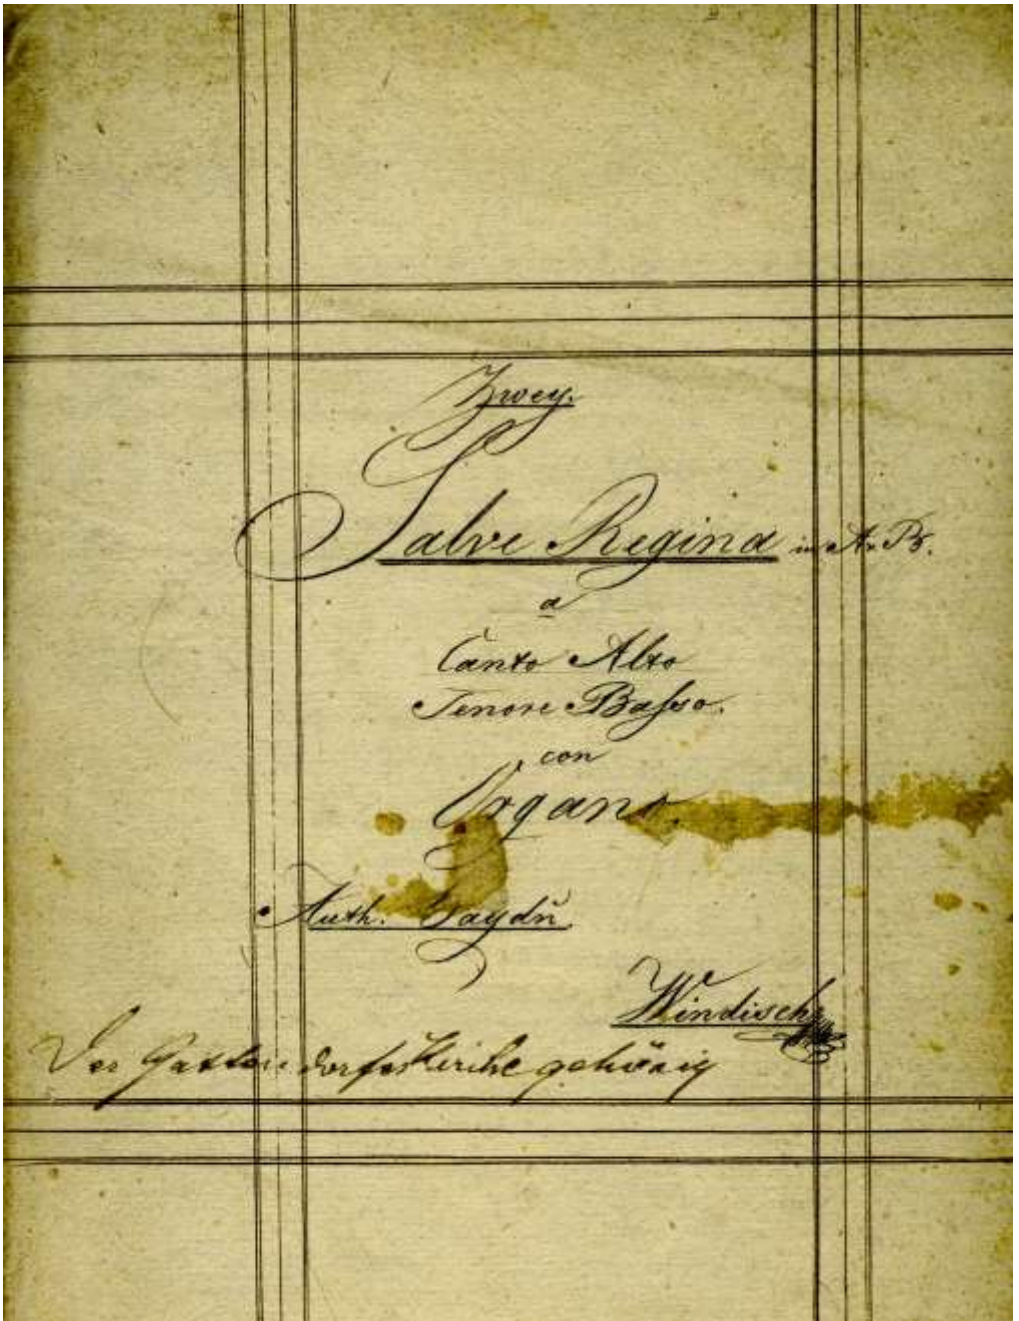 Zwey.
Salve Regina in A. B.
a
Canto Alto
Tenore Basso.
con
Organo.
Auth. Haydn̄.
Windisch
Der Gattendorfer Kirche gehörig